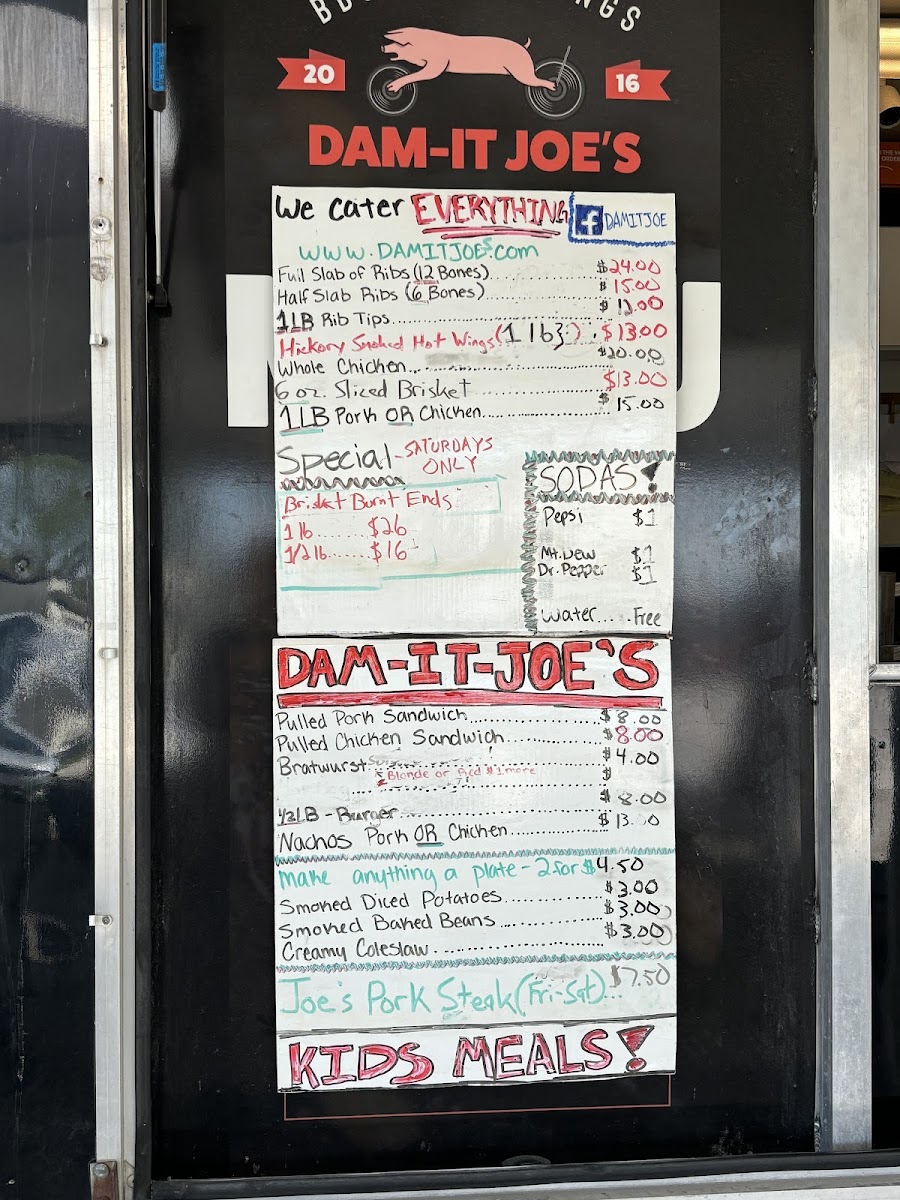 20
16
DAM-IT JOE'S
We Cater EVERYTHING
f DAMITJOE
WWW.DAMITJOES.COM
Full Slab of Ribs (12 Bones)............$24.00
Half Slab Ribs (6 Bones)............$15.00
1LB Rib Tips............$12.00
Hickory Smoked Hot Wings (1 lb)...$13.00
Whole Chicken............$20.00
6 oz. Sliced Brisket............$13.00
1LB Pork OR Chicken............$15.00
Special - SATURDAYS ONLY
Brisket Burnt Ends
1 lb.......$26
1/2 lb......$16
SODAS!
Pepsi $1
Mt. Dew $1
Dr. Pepper $1
Water......Free
DAM-IT-JOE'S
Pulled Pork Sandwich............$8.00
Pulled Chicken Sandwich............$8.00
Bratwurst............$4.00
Blonde or Red $1 more
$
1/2LB - Burger............$8.00
Nachos Pork OR Chicken............$13.00
Make anything a plate - 2 for $4.50
Smoked Diced Potatoes............$3.00
Smoked Baked Beans............$3.00
Creamy Coleslaw............$3.00
Joe's Pork Steak (Fri-Sat)...$7.50
KIDS MEALS!